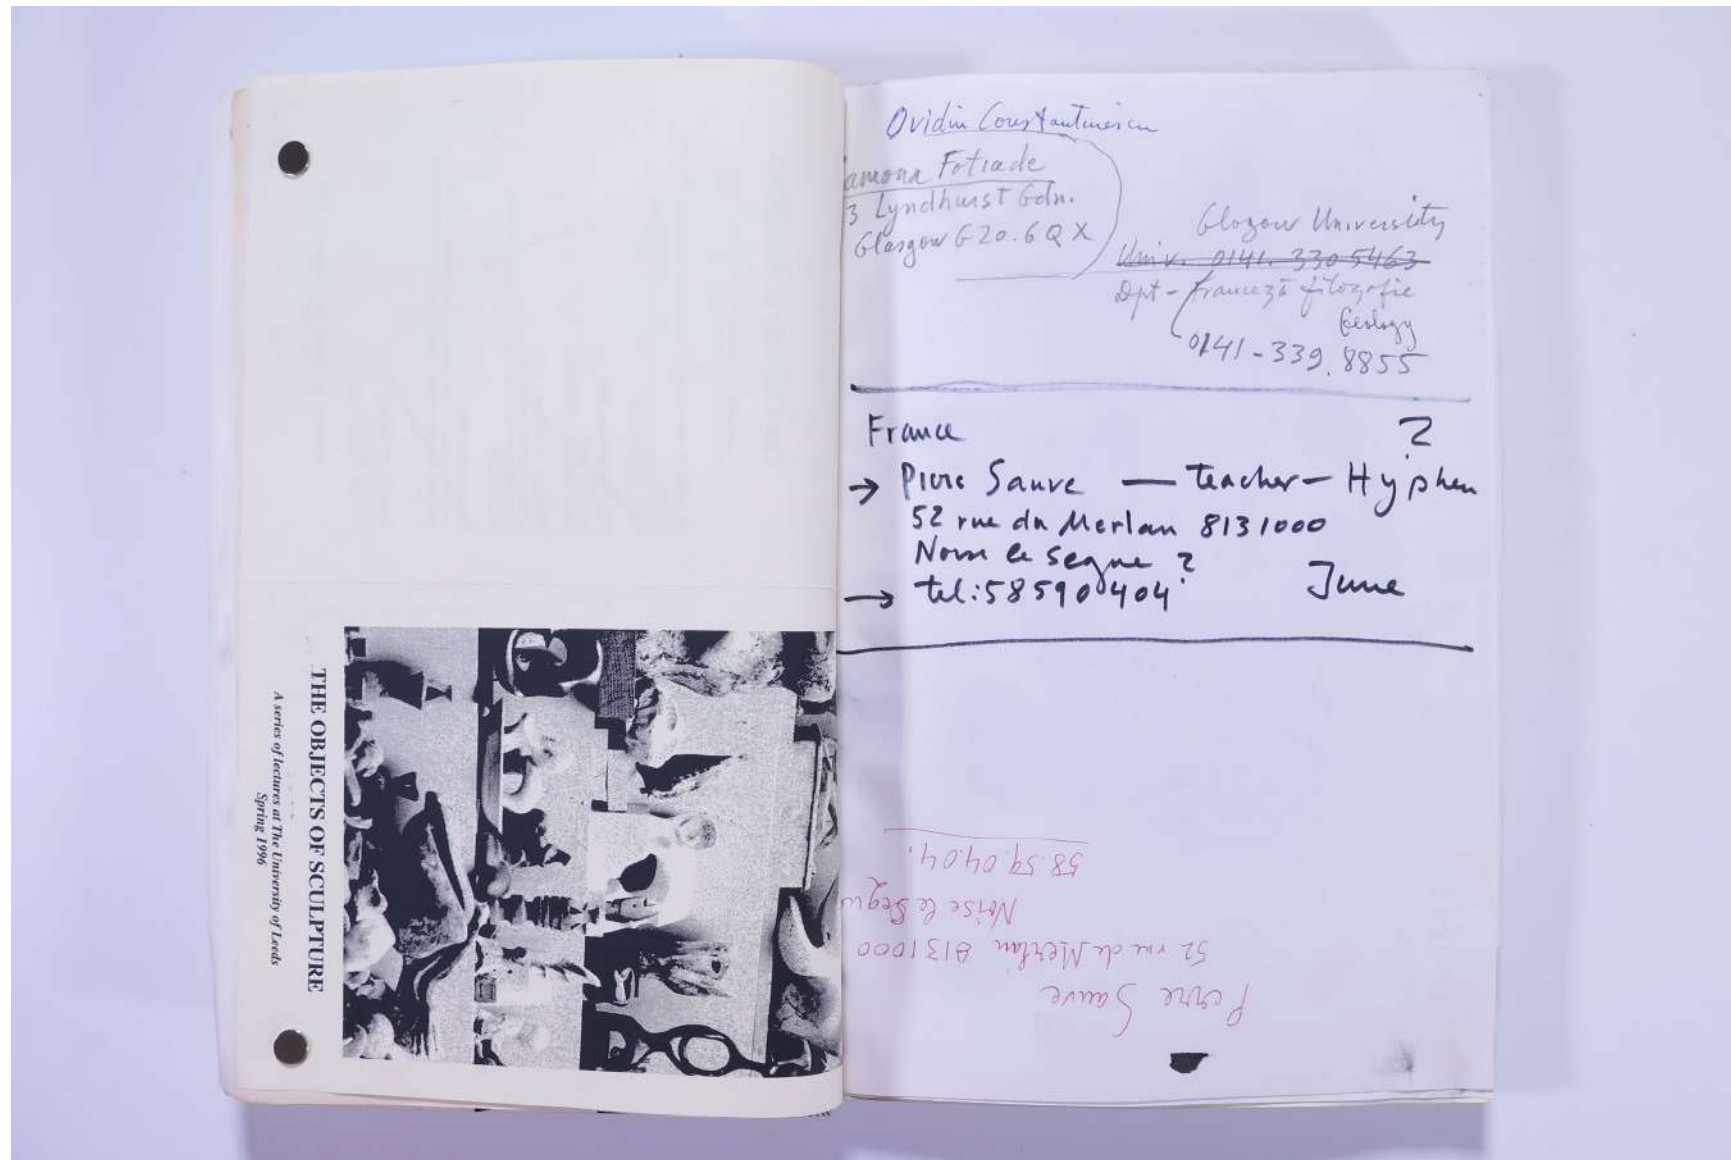 THE OBJECTS OF SCULPTURE
A series of lectures at The University of Leeds
Spring 1996
Ovidiu Constantinescu
amona Fotiade
3 Lyndhurst Gdn.
Glasgow G20.6QX
Glogow University
Univ. 0141. 330 5463
Dpt - franceză filozofie
Geology
0141-339.8855
France ?
→ Pierre Sauve — teacher — Hyphen
52 rue du Merlan 8131000
le segue ?
→ tel: 58590404 June
Pierre Sauve
52 rue de Merlan 8131000
Noise le Segu
58.59.04.04.